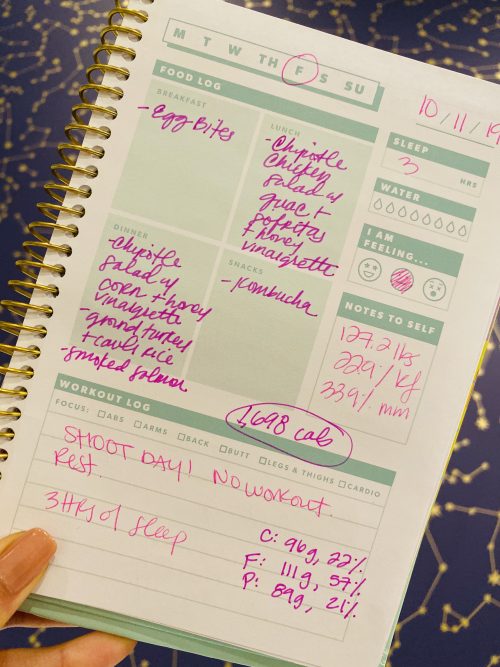 M T W TH F S SU
10/11/19
FOOD LOG
BREAKFAST
- Egg Bites
LUNCH
- Chipotle
chicken
salad w/
guac +
sofritas
+ honey
vinaigrette
DINNER
- Chipotle
salad w/
corn + honey
vinaigrette
- ground turkey
+ cauli rice
- smoked salmon
SNACKS
- Kombucha
1698 cals
SLEEP
3
HRS
WATER
I AM
FEELING...
NOTES TO SELF
127.2 lbs
22.9%
33.9% mm
WORKOUT LOG
FOCUS: ABS ARMS BACK BUTT LEGS & THIGHS CARDIO
SHOOT DAY! NO WORKOUT.
Rest.
3 HRs of sleep
C: 96g, 22%
F: 111g, 57%
P: 89g, 21%